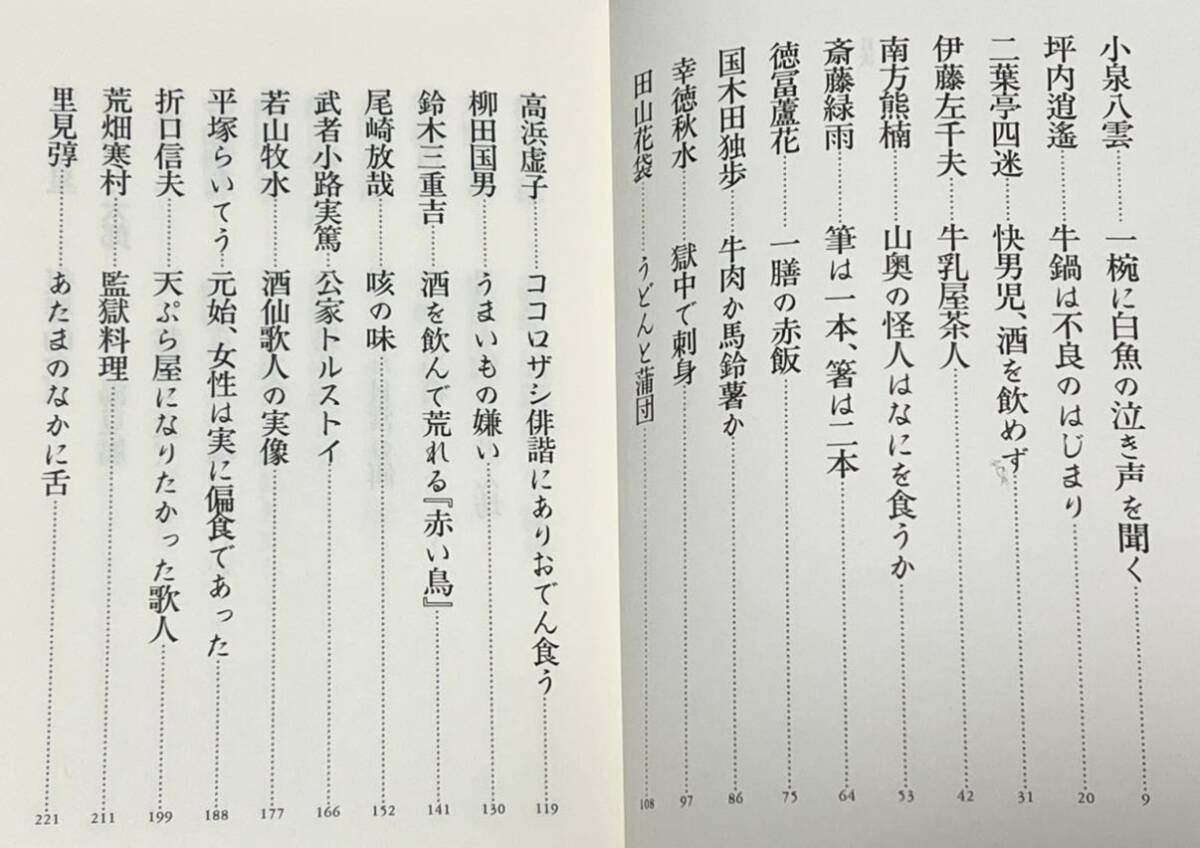 小泉八雲………一椀に白魚の泣き声を聞く………9
坪内逍遙………牛鍋は不良のはじまり………20
二葉亭四迷………快男児、酒を飲めず………31
伊藤左千夫………牛乳屋茶人………42
南方熊楠………山奥の怪人はなにを食うか………53
斎藤緑雨………筆は一本、箸は二本………64
徳冨蘆花………一膳の赤飯………75
国木田独歩………牛肉か馬鈴薯か………86
幸徳秋水………獄中で刺身………97
田山花袋………うどんと蒲団………108
高浜虚子………ココロザシ俳諧にありおでん食う………119
柳田国男………うまいもの嫌い………130
鈴木三重吉………酒を飲んで荒れる『赤い鳥』………141
尾崎放哉………咳の味………152
武者小路実篤………公家トルストイ………166
若山牧水………酒仙歌人の実像………177
平塚らいてう………元始、女性は実に偏食であった………188
折口信夫………天ぷら屋になりたかった歌人………199
荒畑寒村………監獄料理………211
里見弴………あたまのなかに舌………221